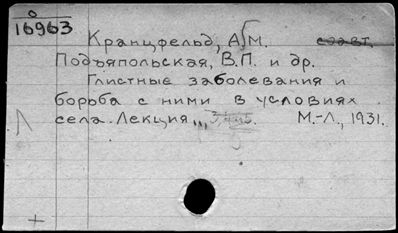 16963
Кранцфельд, А.М. соавт.
Подъяпольская, В.П. и др.
Глистные заболевания и
борьба с ними в условиях
села. Лекция,,, М.-Л., 1931.